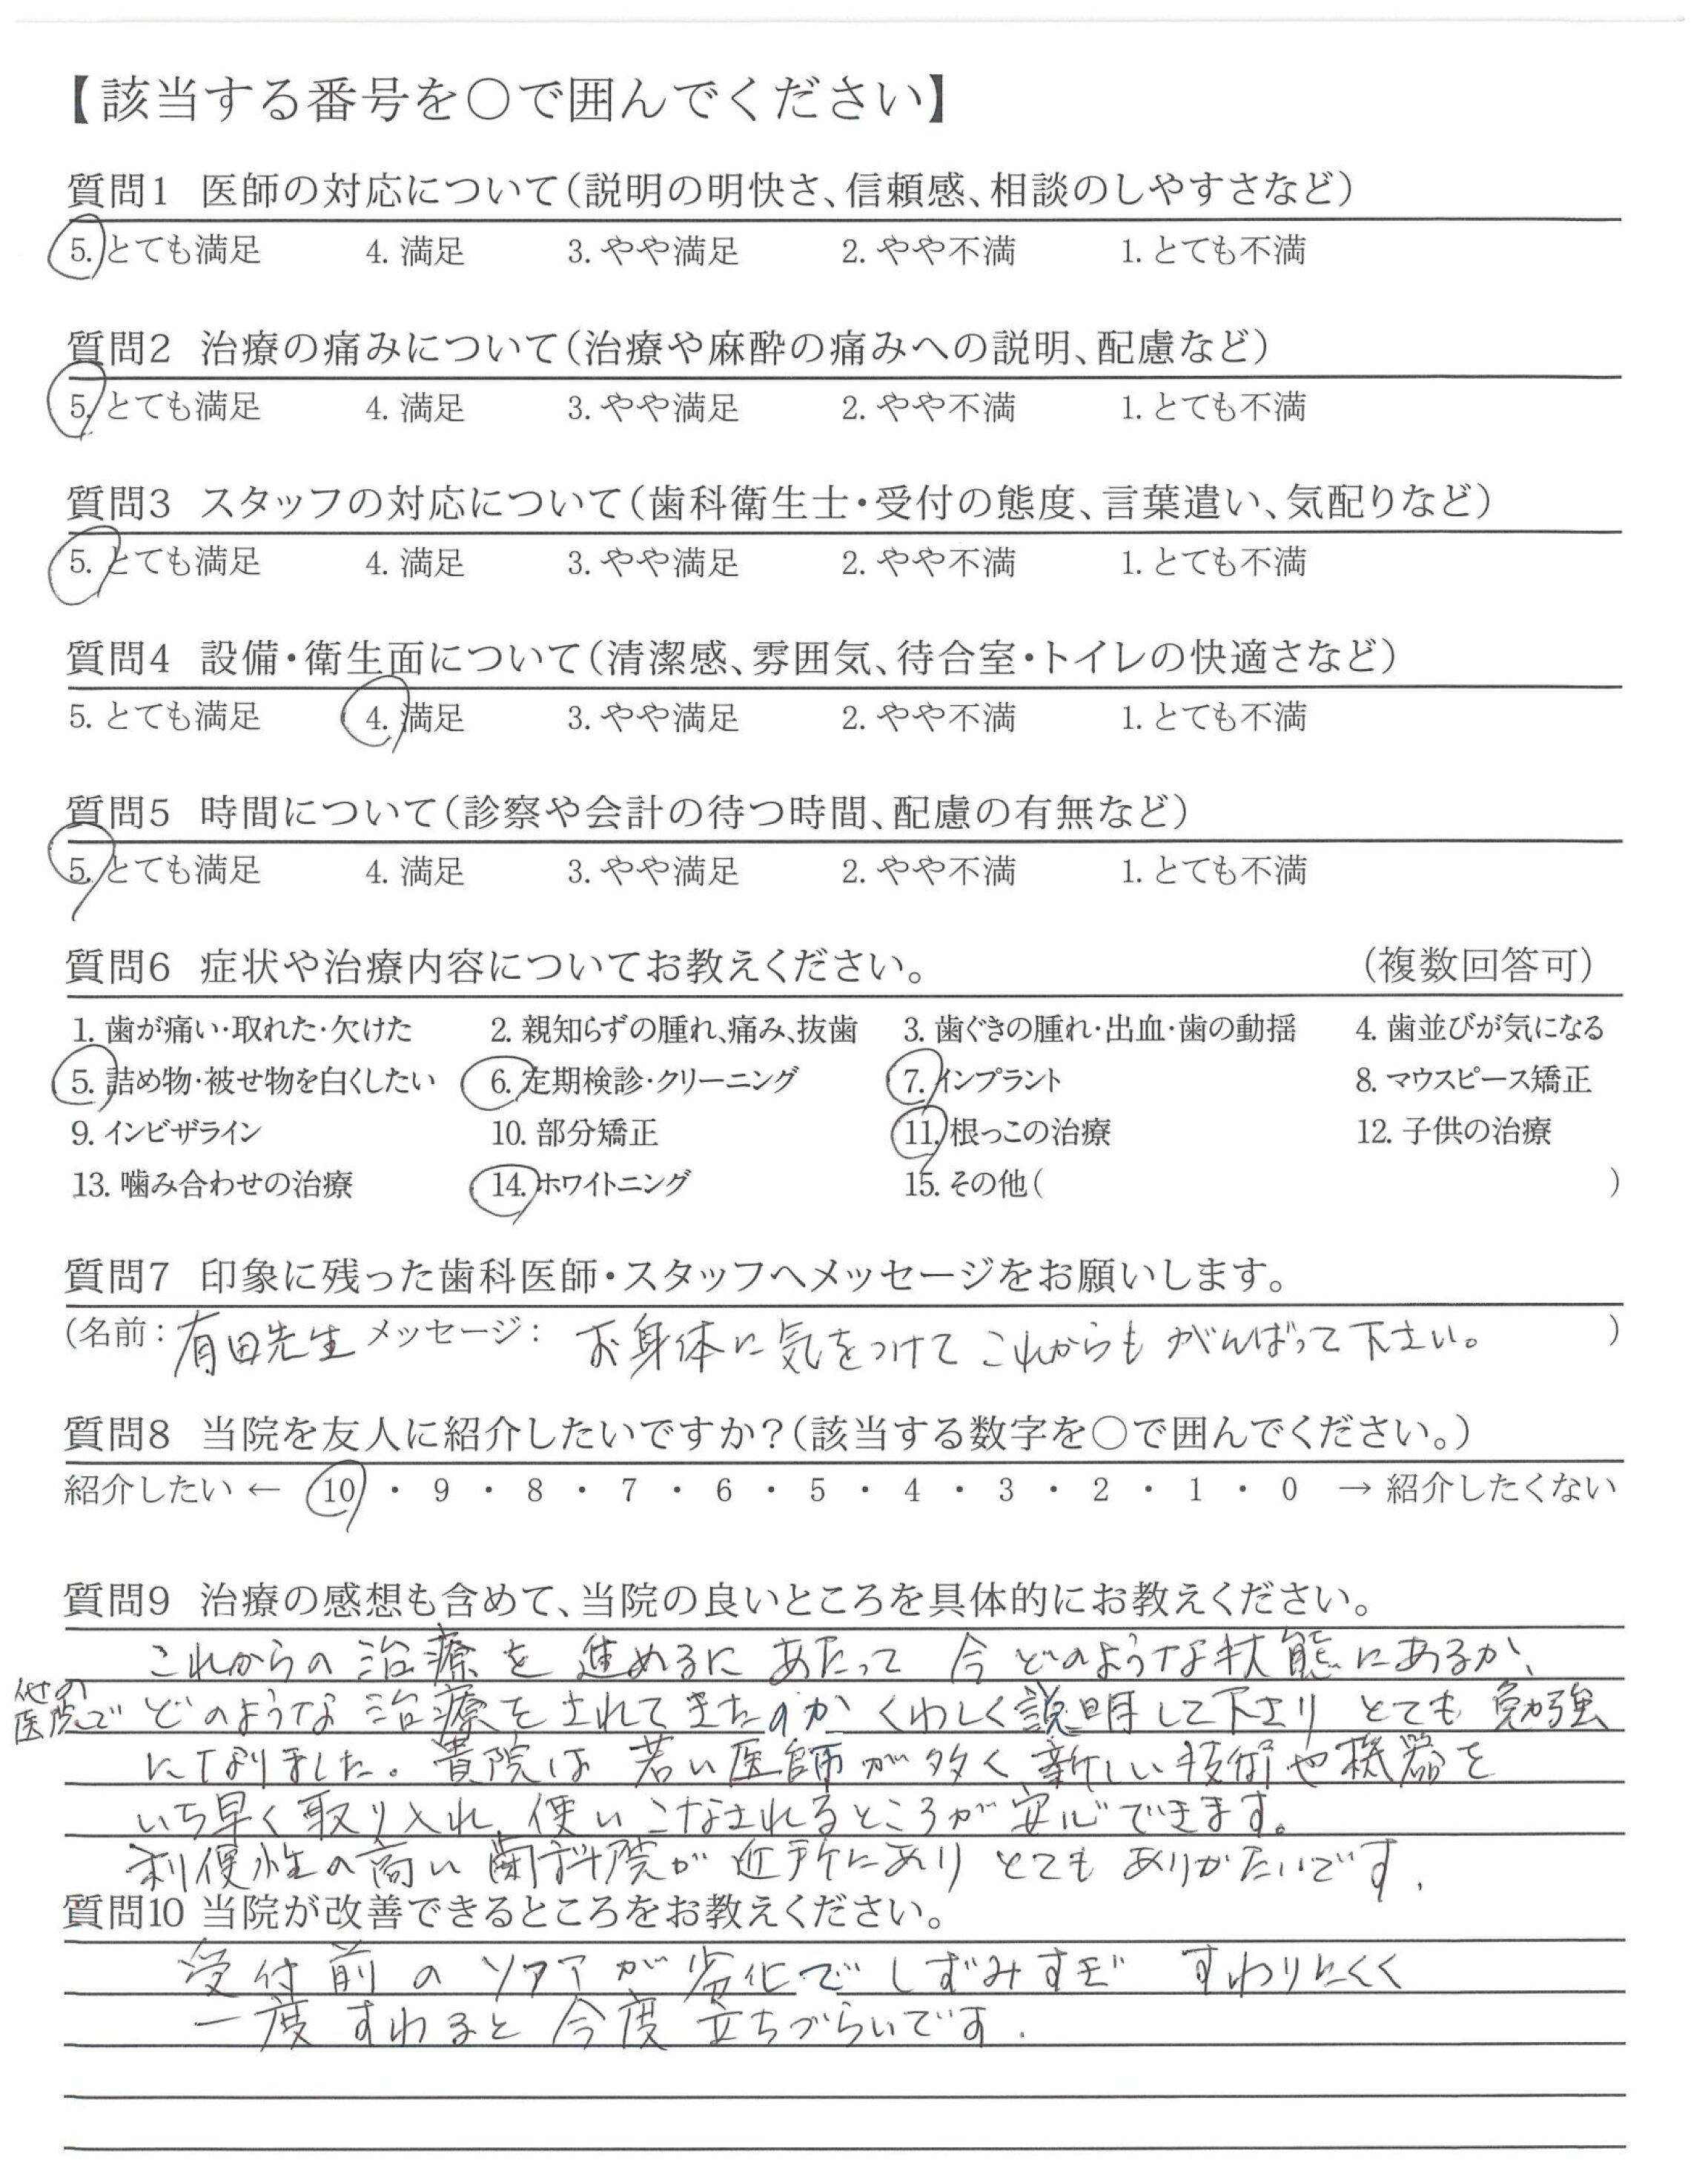 【該当する番号を○で囲んでください】
質問1 医師の対応について(説明の明快さ、信頼感、相談のしやすさなど)
5. とても満足 4. 満足 3. やや満足 2. やや不満 1. とても不満
質問2 治療の痛みについて(治療や麻酔の痛みへの説明、配慮など)
5. とても満足 4. 満足 3. やや満足 2. やや不満 1. とても不満
質問3 スタッフの対応について(歯科衛生士・受付の態度、言葉遣い、気配りなど)
5. とても満足 4. 満足 3. やや満足 2. やや不満 1. とても不満
質問4 設備・衛生面について(清潔感、雰囲気、待合室・トイレの快適さなど)
5. とても満足 4. 満足 3. やや満足 2. やや不満 1. とても不満
質問5 時間について(診察や会計の待つ時間、配慮の有無など)
5. とても満足 4. 満足 3. やや満足 2. やや不満 1. とても不満
質問6 症状や治療内容についてお教えください。 (複数回答可)
1. 歯が痛い・取れた・欠けた 2. 親知らずの腫れ、痛み、抜歯 3. 歯ぐきの腫れ・出血・歯の動揺 4. 歯並びが気になる
5. 詰め物・被せ物を白くしたい 6. 定期検診・クリーニング 7. インプラント 8. マウスピース矯正
9. インビザライン 10. 部分矯正 11. 根っこの治療 12. 子供の治療
13. 噛み合わせの治療 14. ホワイトニング 15. その他( )
質問7 印象に残った歯科医師・スタッフへメッセージをお願いします。
(名前: 有田先生 メッセージ: お身体に気をつけて これからも がんばって下さい。 )
質問8 当院を友人に紹介したいですか?(該当する数字を○で囲んでください。)
紹介したい ← 10 ・ 9 ・ 8 ・ 7 ・ 6 ・ 5 ・ 4 ・ 3 ・ 2 ・ 1 ・ 0 → 紹介したくない
質問9 治療の感想も含めて、当院の良いところを具体的にお教えください。
これからの治療を進めるにあたって 今どのような状態にあるか、
他の医院でどのような治療をされてきたのか くわしく説明して下さり とても勉強
になりました。貴院は若い医師が多く新しい技術や機器を
いち早く取り入れ、使いこなされるところが安心できます。
利便性の高い歯科院が近所にあり とても ありがたいです.
質問10 当院が改善できるところをお教えください。
受付前のソファが劣化でしずみすぎ すわりにくく
一度すわると今度立ちづらいです.